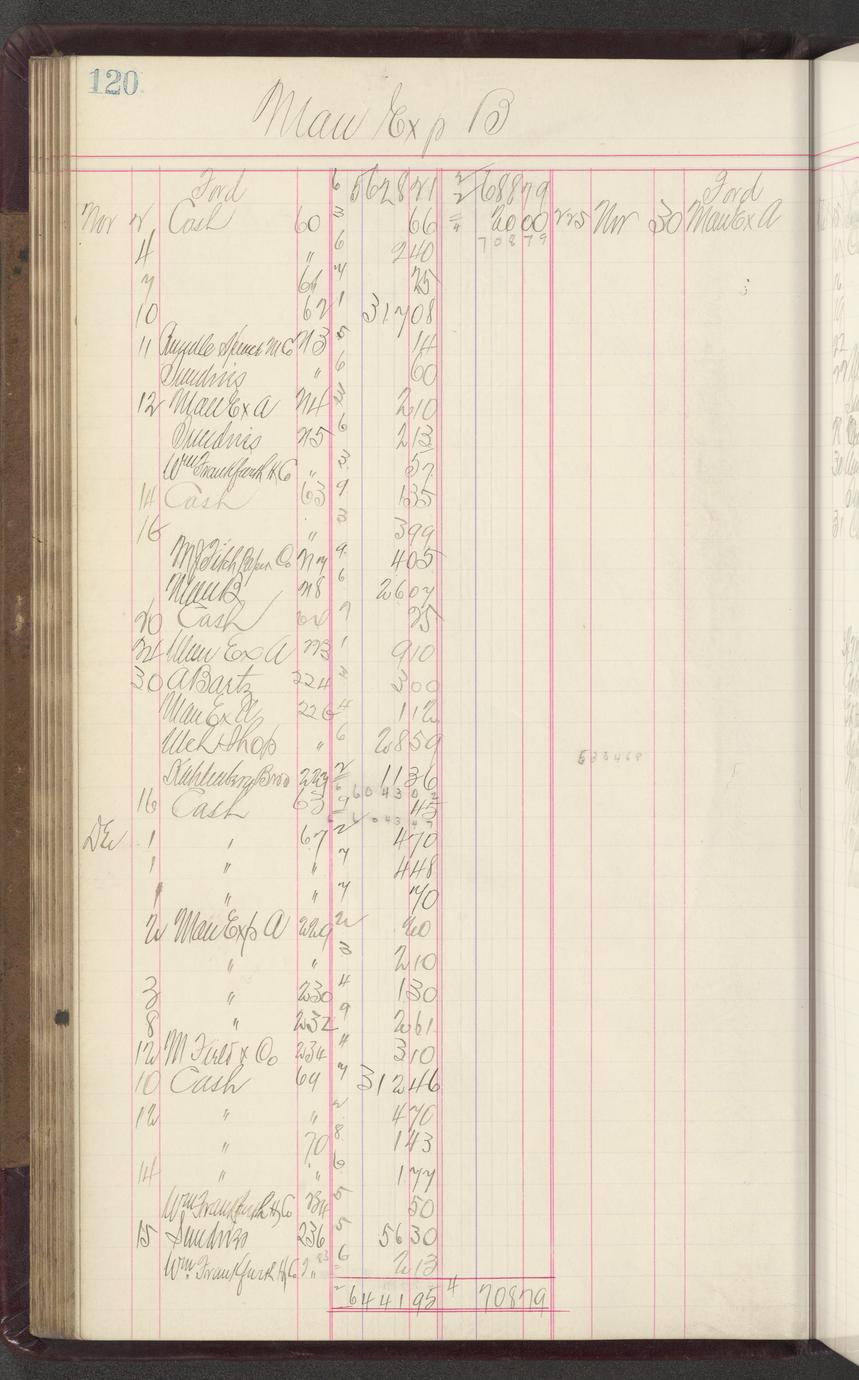 120
Man Exp B
Ford 6 562821 2 68879 Ford
Nov 2 Cash 60 3 66 2 2000 225 Nov 30 Man Ex A
4 " 6 240 70879
7 61 7 25
10 62 1 31708
11 Rundle Spence M Co 213 5 14
Sundries " 6 60
12 Man Ex A 214 3 210
Sundries 215 6 213
Wm Frankfurth H Co " 3 57
14 Cash 63 9 135
16 " 3 399
M J Fitch Paper Co 217 9 405
Man B 218 6 2607
20 Cash 64 9 25
24 Man Ex A 223 1 910
30 A Bartz 224 3 300
Man Ex A 226 4 112
Mch Shop " 6 2859
Kahlenberg Bros 229 2 1136 533468
604302
16 Cash 63 9 45
604347
Dec 1 " 67 2 470
1 " " 7 448
1 " " 7 70
2 Man Exp A 229 2 20
" " 3 210
3 " 230 4 130
8 " 232 9 261
12 M Field & Co 234 4 310
10 Cash 69 7 31246
12 " " 2 470
" 70 8 143
14 " " 6 177
Wm Frankfurth H Co 234 5 50
15 Sundries 236 5 5630
Wm Frankfurth H Co 6 213
2 644195 4 70879